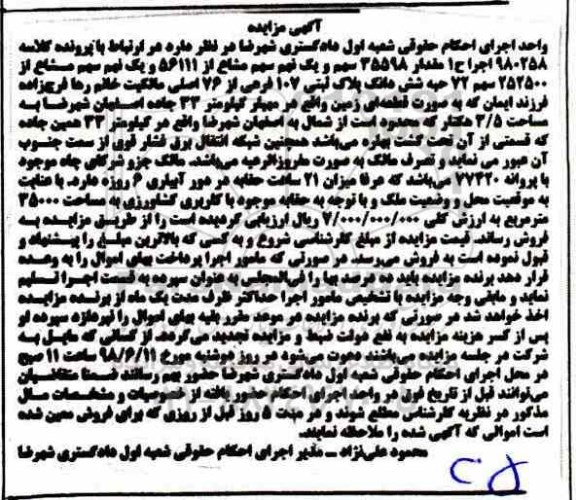 آگهی مزایده
واحد اجرای احکام حقوقی شعبه اول دادگستری شهرضا در نظر دارد در ارتباط با پرونده کلاسه
۹۸۰۲۵۸ اجرا ح۱ مقدار ۳۵۵۹۸ سهم و یک نهم سهم مشاع از ۵۶۱۱۱ و یک نهم سهم مشاع از
۲۵۲۵۰۰ سهم ۷۲ حبه شش دانگ پلاک ثبتی ۱۰۷ فرعی از ۷۶ اصلی مالکیت خانم رها فرج‌زاده
فرزند ایمان که به صورت قطعه‌ای زمین واقع در مهیار کیلومتر ۳۳ جاده اصفهان شهرضا به
مساحت ۳/۵ هکتار که محدود است از شمال به اصفهان شهرضا واقع در کیلومتر ۳۳ همین جاده
که قسمتی از آن تحت کشت بهاره می‌باشد همچنین شبکه انتقال برق فشار قوی از سمت جنوب
آن عبور می نماید و تصرف مالک به صورت مفروزالرعیه می‌باشد. مالک جزو شرکای چاه موجود
با پروانه ۷۷۳۲۰ می‌باشد که عرفا میزان ۲۱ ساعت حقابه در دور آبیاری ۶ روزه دارد. با عنایت
به موقعیت محل و وضعیت ملک و با توجه به حقابه موجود با کاربری کشاورزی به مساحت ۳۵۰۰۰
مترمربع به ارزش کلی ۷/۰۰۰/۰۰۰/۰۰۰ ریال ارزیابی گردیده است را از طریق مزایده به
فروش رساند. قیمت مزایده از مبلغ کارشناسی شروع و به کسی که بالاترین مبلغ را پیشنهاد و
قبول نموده است به فروش می‌رسد. در صورتی که مامور اجرا پرداخت بهای اموال را به وعده
قرار دهد برنده مزایده باید ده درصد بها را فی‌المجلس به عنوان سپرده به قسمت اجرا تسلیم
نماید و مابقی وجه مزایده با تشخیص مامور اجرا حداکثر ظرف مدت یک ماه از برنده مزایده
اخذ خواهد شد در صورتی که برنده مزایده در موعد مقرر بقیه بهای اموال را نپردازد سپرده او
پس از کسر هزینه مزایده به نفع دولت ضبط و مزایده تجدید می‌گردد. از کسانی که مایل به
شرکت در جلسه مزایده می‌باشند دعوت می‌شود در روز دوشنبه مورخ ۹۸/۶/۱۱ ساعت ۱۱ صبح
در محل اجرای احکام حقوقی شعبه اول دادگستری شهرضا حضور بهم رسانند ضمنا متقاضیان
می‌توانند قبل از تاریخ فوق در واحد اجرای احکام حضور یافته از خصوصیات و مشخصات مال
مذکور در نظریه کارشناس مطلع شوند و در مدت ۵ روز قبل از روزی که برای فروش معین شده
است اموالی که آگهی شده را ملاحظه نمایند.
محمود علی‌نژاد ــ مدیر اجرای احکام حقوقی شعبه اول دادگستری شهرضا